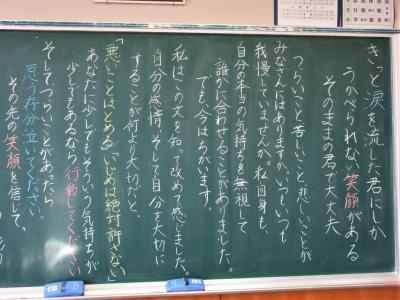 きっと涙を流した君にしか
うかべられない笑顔がある
そのままの君で大丈夫
つらいこと苦しいこと、悲しいことが
みなさんにはありますか。いつもいつも
我慢していませんか。私自身も、
自分の本当の気持ちを無視して
誰かに合わせることがありました。
でも、今はちがいます。
私はこの文を知って改めて感じました。
自分の感情、そして自分を大切に
することが何より大切だと。
「悪いことはとめる」「いじめは絶対許さない」
あなたに少しでもそういう気持ちが
少しでもあるなら行動してください
そしてつらいことがあったら
思う存分泣いてください。
その先の笑顔を信じて。